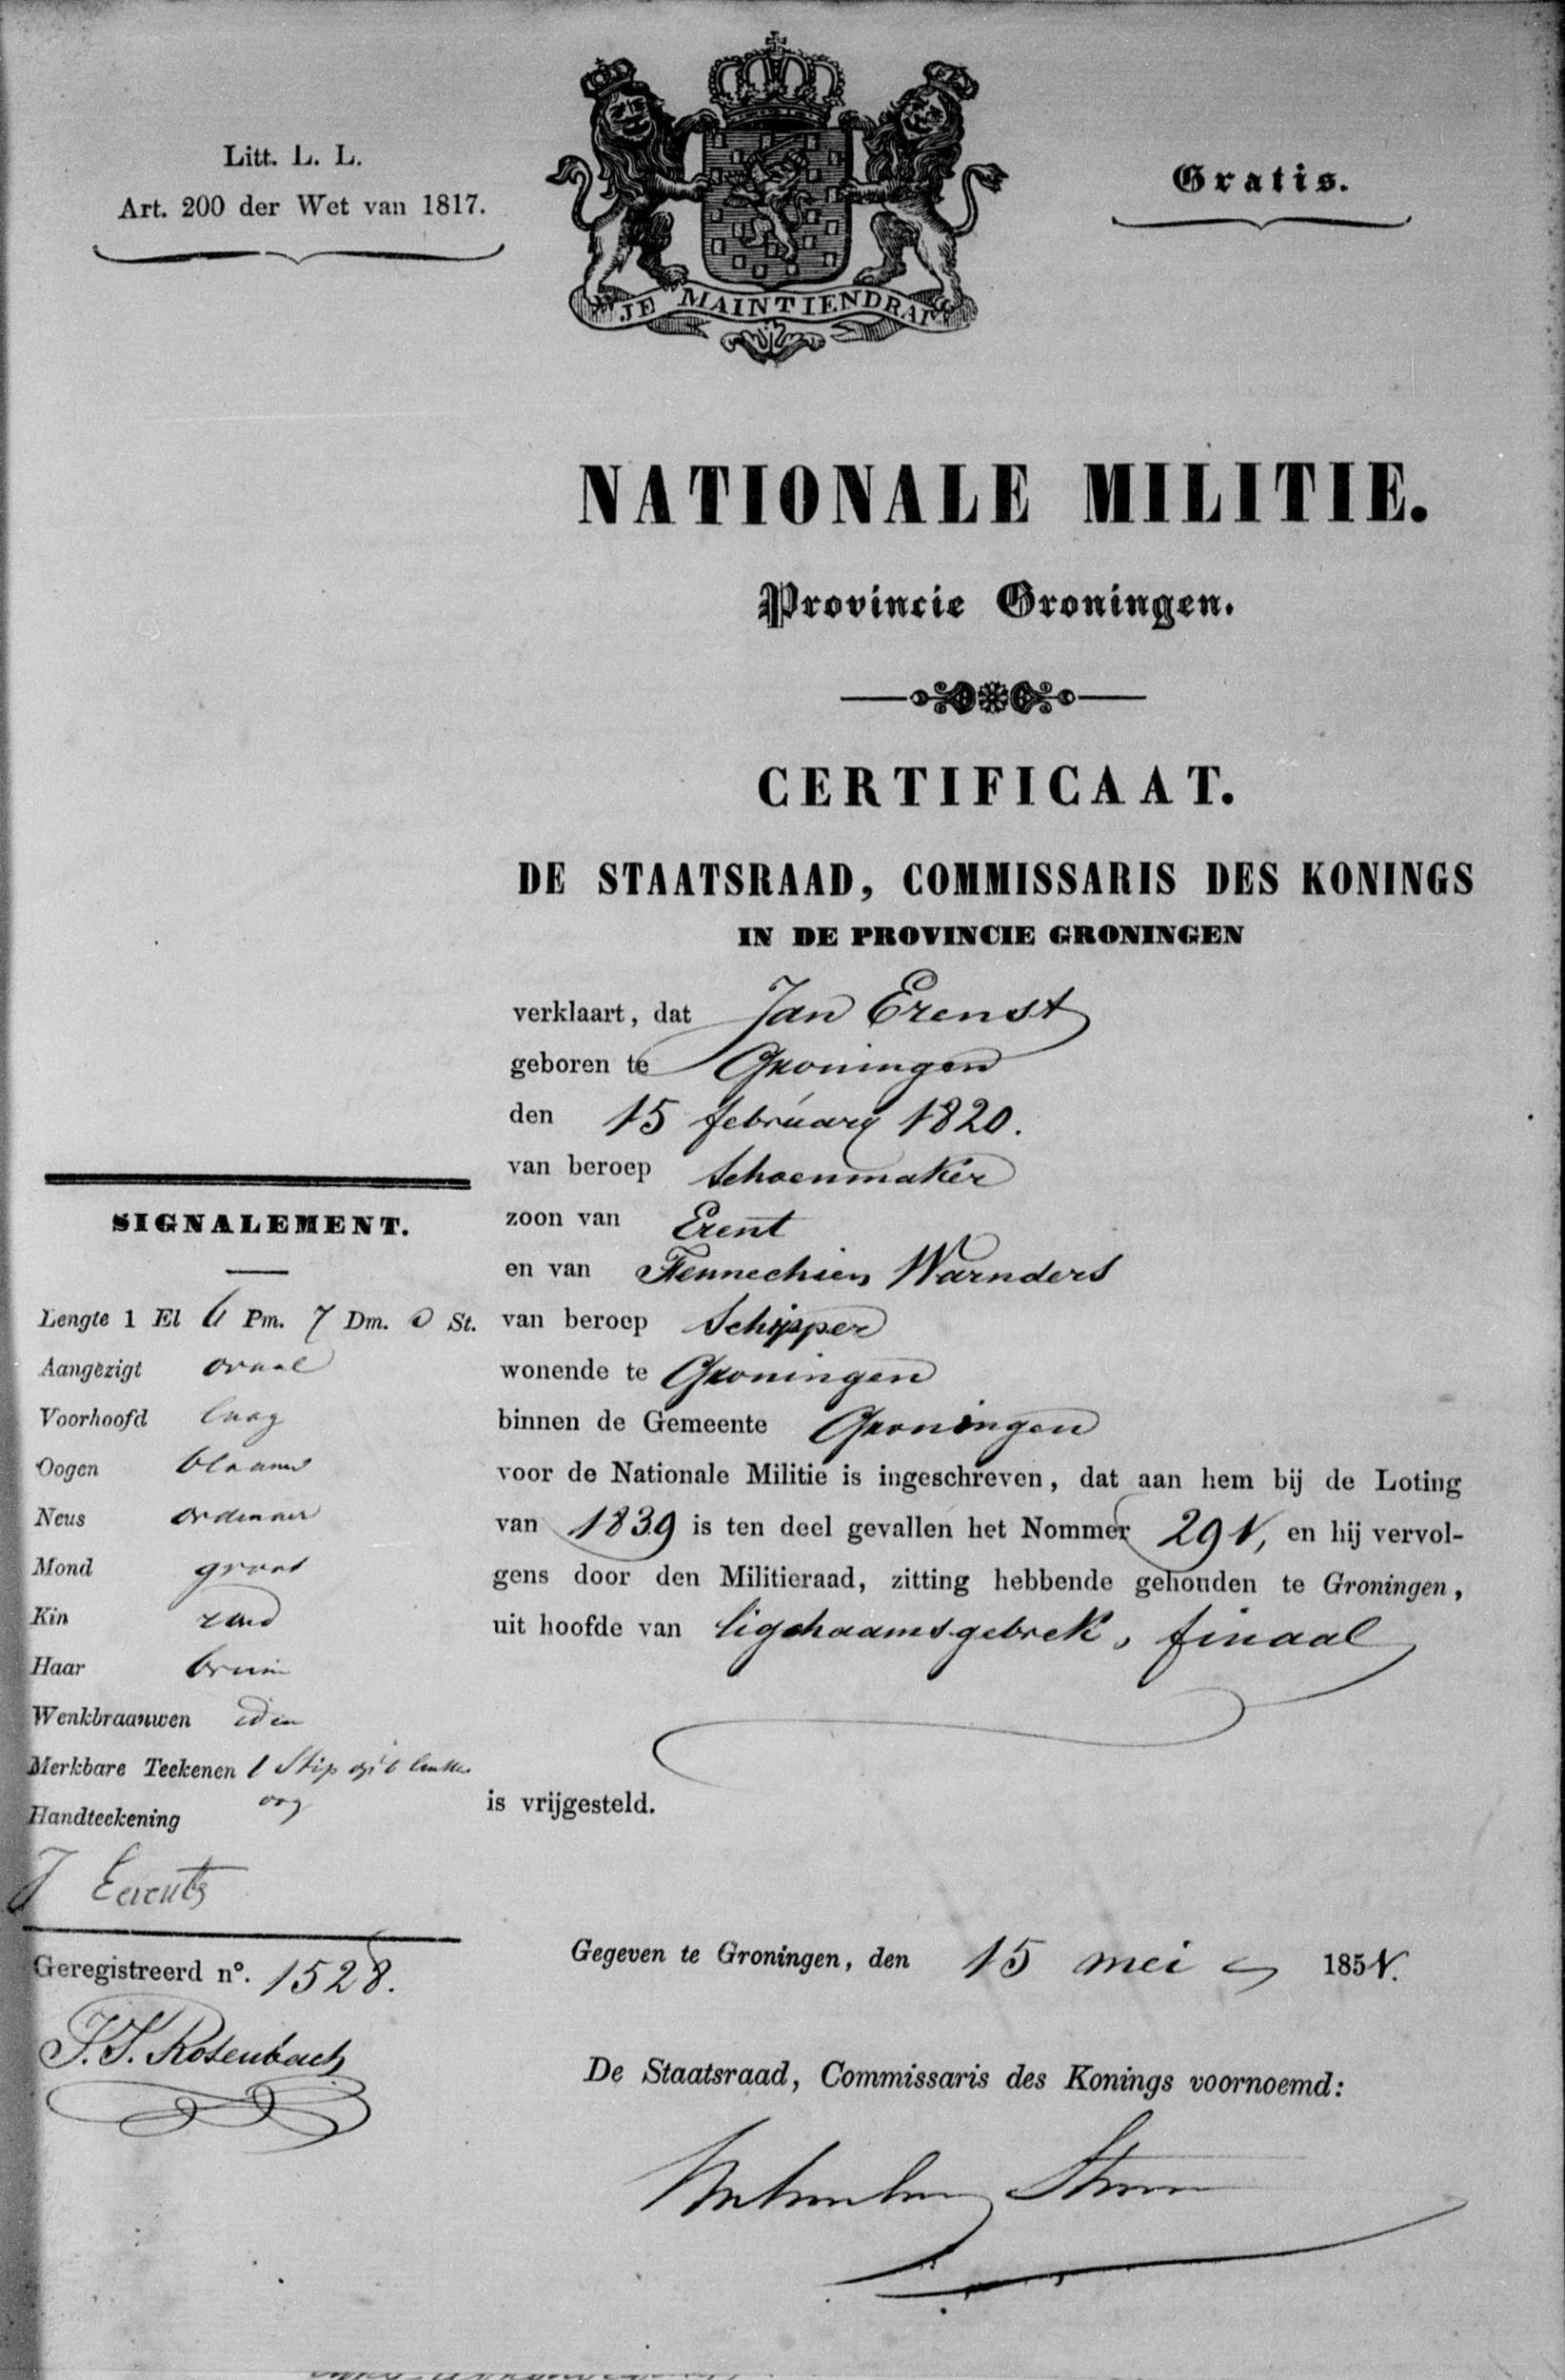 Litt. L. L.
Art. 200 der Wet van 1817.
Gratis.
JE MAINTIENDRAI
NATIONALE MILITIE.
Provincie Groningen.
CERTIFICAAT.
DE STAATSRAAD, COMMISSARIS DES KONINGS
IN DE PROVINCIE GRONINGEN
verklaart, dat Jan Erenst
geboren te Groningen
den 15 februarij 1820.
van beroep Schoenmaker
zoon van Erent
en van Fennechien Warnders
van beroep Schipper
wonende te Groningen
binnen de Gemeente Groningen
voor de Nationale Militie is ingeschreven, dat aan hem bij de Loting
van 1839 is ten deel gevallen het Nommer 291, en hij vervol-
gens door den Militieraad, zitting hebbende gehouden te Groningen,
uit hoofde van ligchaamsgebrek, finaal
is vrijgesteld.
Gegeven te Groningen, den 15 mei 1851.
De Staatsraad, Commissaris des Konings voornoemd:
SIGNALEMENT.
Lengte 1 El 6 Pm. 7 Dm. 0 St.
Aangezigt ovaal
Voorhoofd laag
Oogen blaauw
Neus ordinair
Mond groot
Kin rond
Haar bruin
Wenkbraauwen idem
Merkbare Teekenen 1 Stip bij 't linker
oog
Handteekening
J Eerents
Geregistreerd n°. 1528.
J. J. Rosenbach